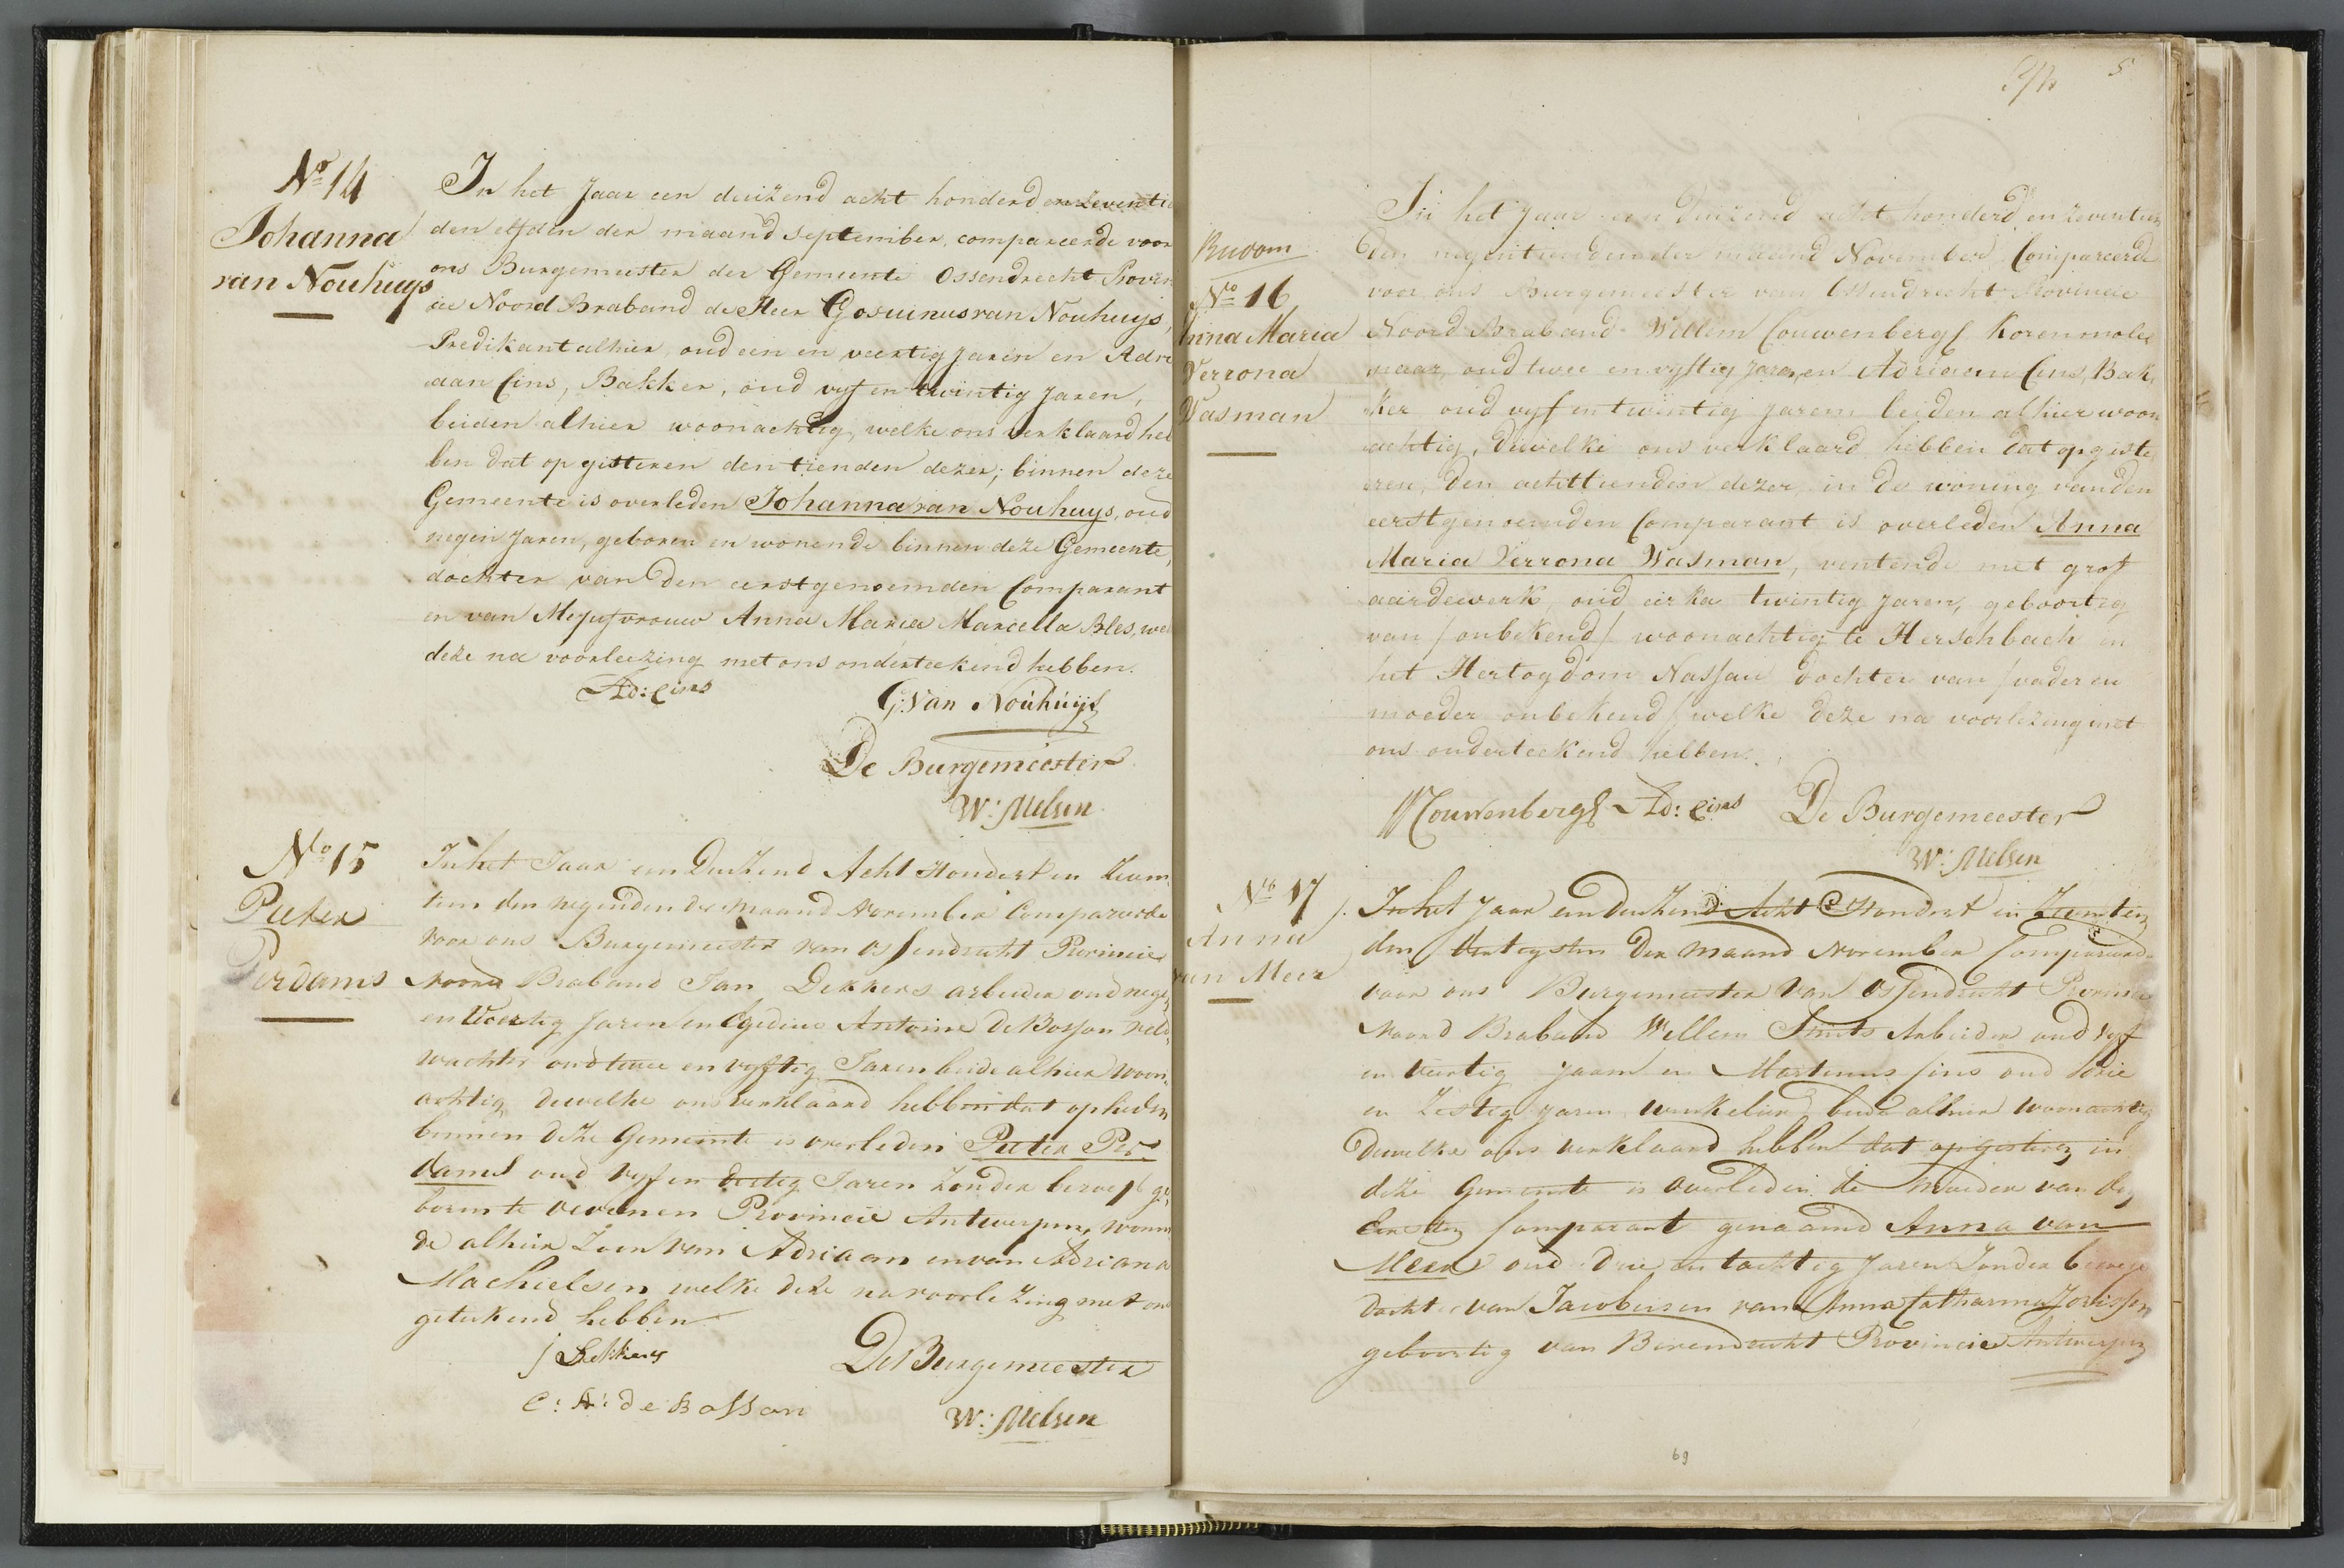 No 14
Johanna
van Nouhuys
In het Jaar een duizend acht honderd en zeventie
den elfden der maand September, compareerde voor
ons Burgemeester der Gemeente Ossendrecht Provin
cie Noord Braband de Heer Gosuinus van Nouhuijs,
Predikant alhier, oud een en veertig jaren en Adri
aan Cins, Bakker, oud vyf en twintig jaren,
beiden alhier woonachtig, welke ons verklaard heb
ben dat op gisteren den tienden dezer; binnen deze
Gemeente is overleden Johanna van Nouhuys, oud
negen Jaren, geboren en wonende binnen deze Gemeente,
dochter van den eerstgenoemden Comparant
en van Mejufvrouw Anna Maria Marcella Bles, wel
deze na voorleezing met ons onderteekend hebben.
Ad: Cins
G. Van Nouhuijs
De Burgemeester
W: Melsen
No 15
Pieter
Perdams
In het Jaar een Duizend Acht Hondert en Zeven
tien den negenden der Maand November Compareerde
voor ons Burgemeester van Ossendrecht Provincie
Noord Braband Jan Dekkers arbeider oud nege
en Veertig Jaren en Egidius Antoine De Bosson veld
wachter oud twee en vyftig Jaren beide alhier woon
achtig, dewelke ons verklaard hebben dat op heden
binnen deze Gemeente is overleden Pieter Per
dams oud vyf en dertig Jaren zonder beroep ge
boren te Provincie Antwerpen, wonen
de alhier Zoon van Adriaan en van Adriana
Machielsen welke deze na voorlezing met ons
getekend hebben
J Dekkers
De Burgemeester
E: A: de Bosson
W: Melsen
5
No 16
Anna Maria
Verrona
Wasman
In het Jaar een duizend acht honderd en zeventien
den negentienden der maand November Compareerde
voor ons Burgemeester van Ossendrecht Provincie
Noord Braband Willem Couwenbergs Korenmole
naar, oud twee en vyftig jaren, en Adriaan Cins, Bak
ker oud vyf en twintig jaren beiden alhier woon
achtig, dewelke ons verklaard hebben dat op giste
ren, den achttienden dezer, in de woning van den
eerstgenoemden Comparant is overleden Anna
Maria Verrona Wasman, ventende met grof
aardewerk, oud cirka twintig jaren, geboortig
van /onbekend/ woonachtig te Herschbach in
het Hertogdom Nassau dochter van /vader en
moeder onbekend/ welke deze na voorlezing met
ons onderteekend hebben.
WCouwenbergs Ad: Cins De Burgemeester
W: Melsen
No 17
Anna
van Meer
In het Jaar een duizend Acht Hondert en Zeventien
den dertigsten der Maand November Compareerde
voor ons Burgemeester van Ossendrecht Provincie
Noord Braband Willem Smits Arbeider oud vyf
en veertig Jaaren en Martinus Cins oud drie
en Zestig jaren winkelier beide alhier woonachtig
dewelke ons verklaard hebben dat op gisteren in
deze Gemeente is overleden de Moeder van den
Eersten Comparant genaamd Anna van
Meer oud drie en tachtig Jaren Zonder beroep
dochter van Jacobus en van Anna Catharina Jorissen
geboortig van Berendrecht Provincie Antwerpen
69